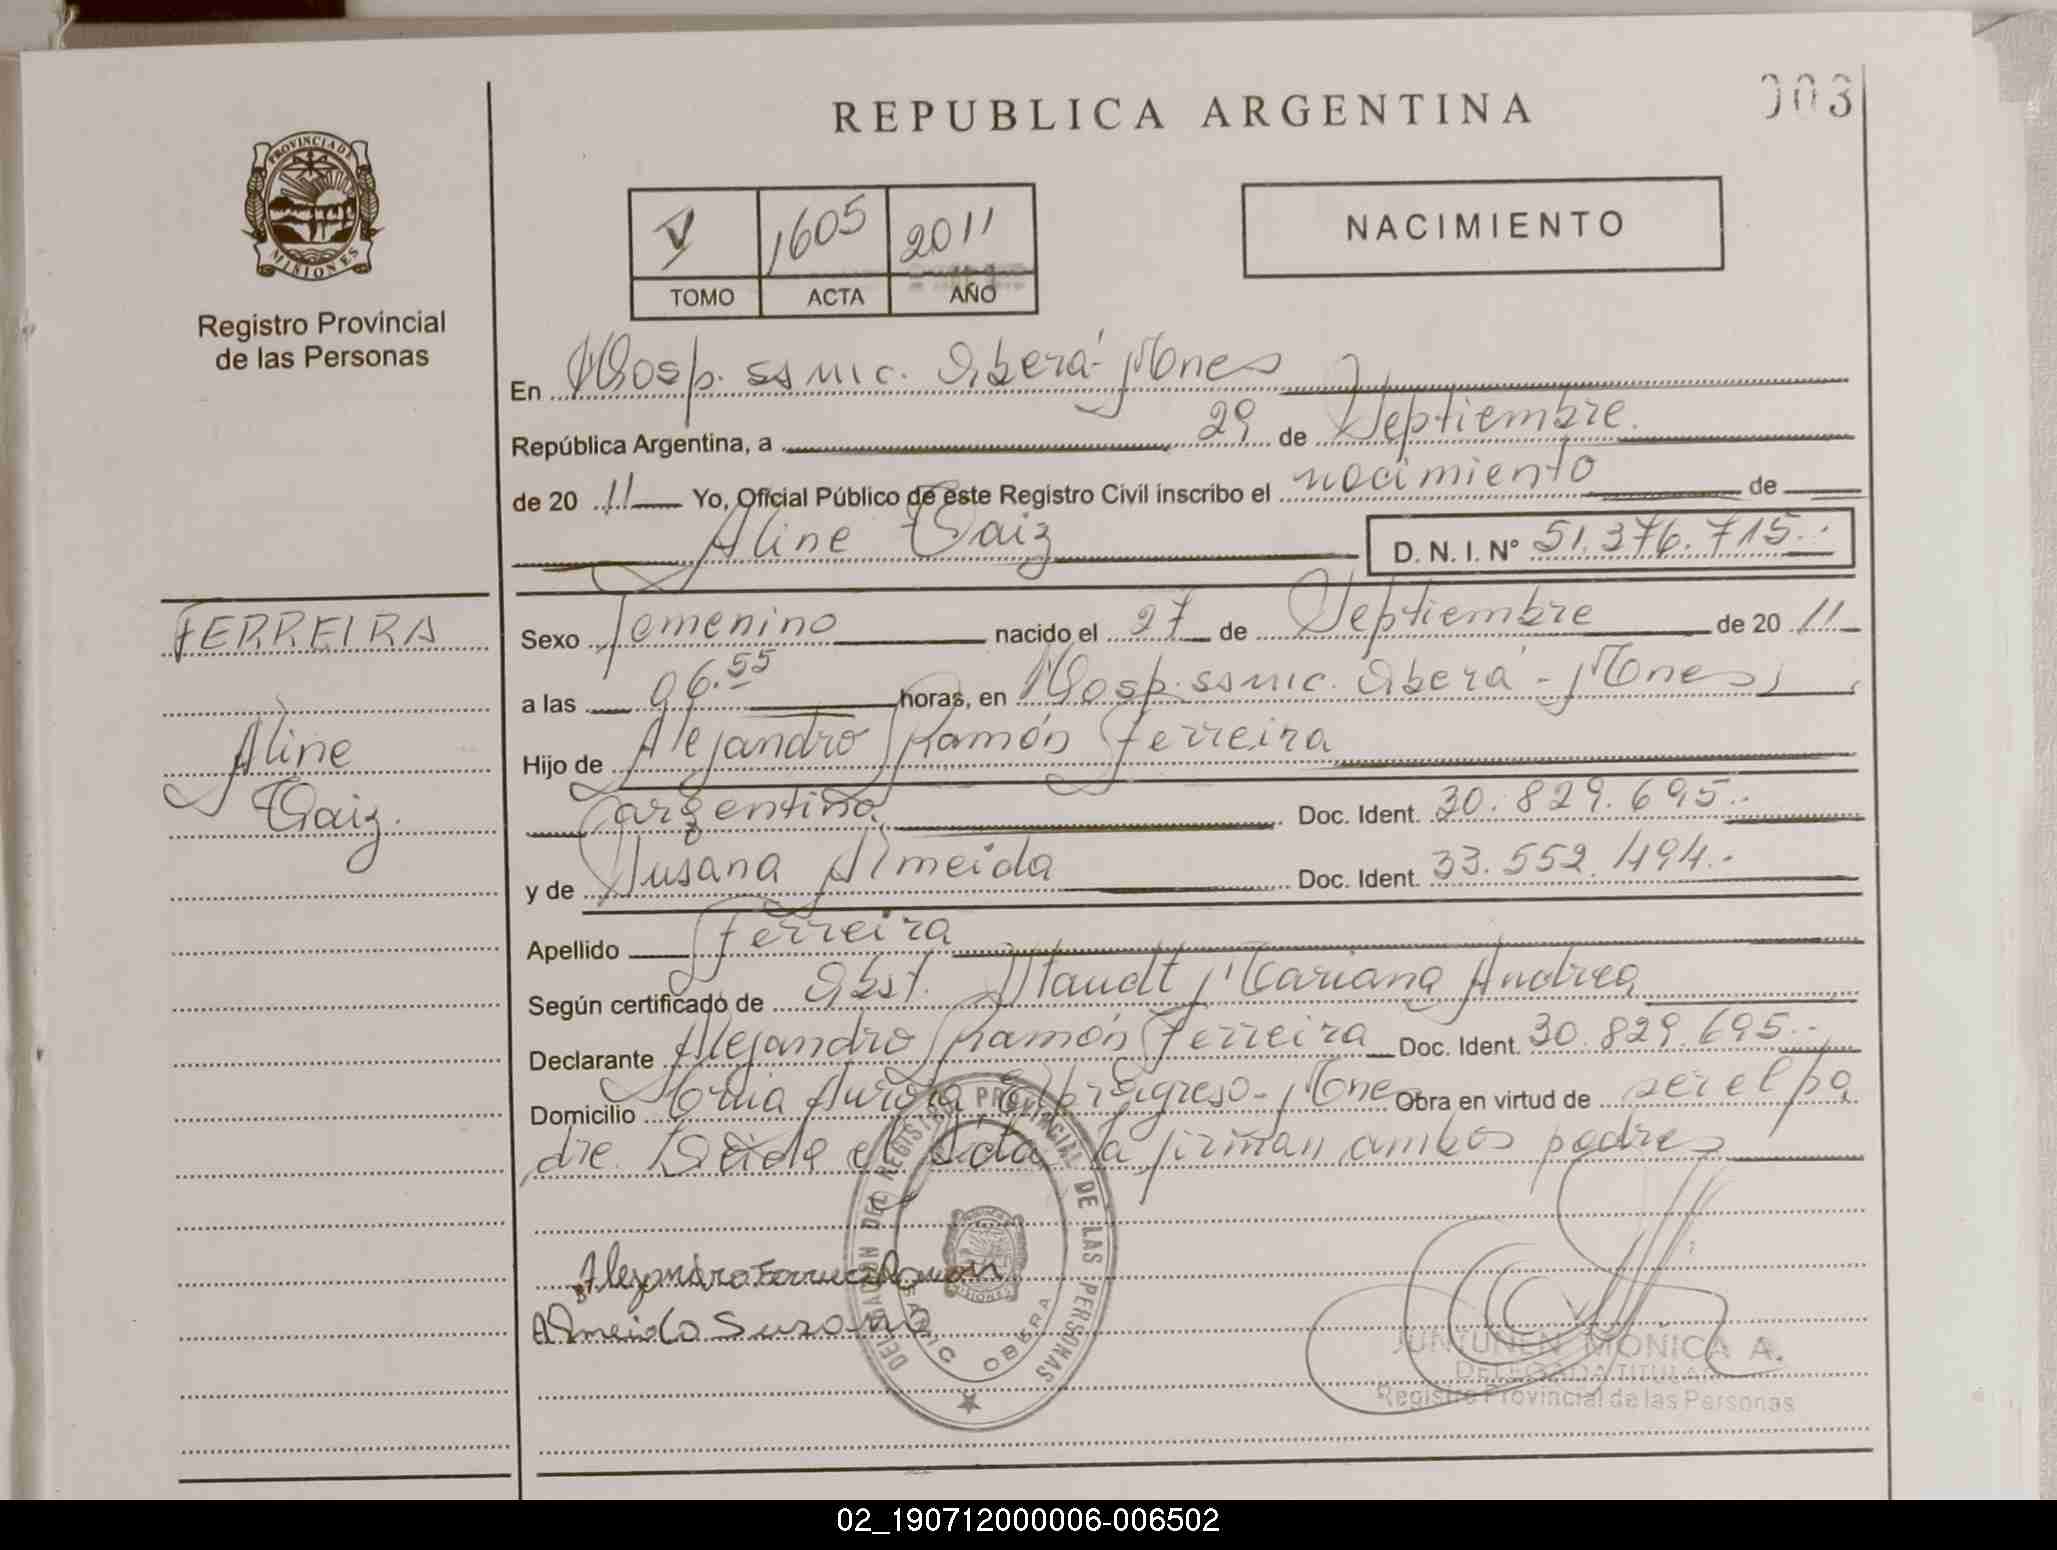 REPUBLICA ARGENTINA
003
PROVINCIA DE
MISIONES
Registro Provincial
de las Personas
V 1605 2011
TOMO ACTA AÑO
NACIMIENTO
En Hosp. ssmic. Oberá - Mnes
República Argentina, a 29 de Septiembre.
de 20 11 Yo, Oficial Público de este Registro Civil inscribo el nacimiento de
Aline Taiz D. N. I. N° 51.376.715.-
FERREIRA
Aline
Taiz.
Sexo Femenino nacido el 27 de Septiembre de 20 11
a las 06.55 horas, en Hosp. ssmic. Oberá - Mnes,
Hijo de Alejandro Ramón Ferreira
argentino, Doc. Ident. 30.829.695.-
y de Susana Almeida Doc. Ident. 33.552.494.-
Apellido Ferreira
Según certificado de Obst. Staudt Mariana Andrea
Declarante Alejandro Ramón Ferreira Doc. Ident. 30.829.695.-
Domicilio Aurora Mnes Obra en virtud de ser el pa
dre. Leída el Acta la firman ambos padres
Alejandro Ferreira Ramon
Almeida Susana
DELEGACION DEL REGISTRO PROVINCIAL DE LAS PERSONAS
MISIONES
SAMIC OBERA
JUNTUNEN MONICA A.
DELEGADA TITULAR
Registro Provincial de las Personas
02_190712000006-006502